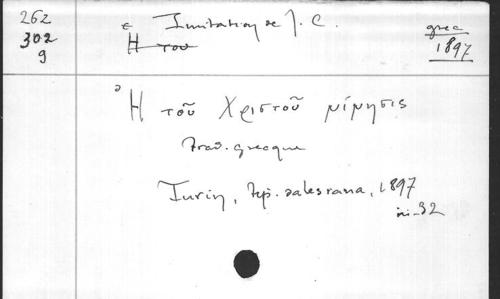 262
302
9
Imitation de J. C.
Ἡ τοῦ
grec
1897
Ἡ τοῦ Χριστοῦ μίμησις
Trad. grecque
Turin, typ. salesiana, 1897
in-32